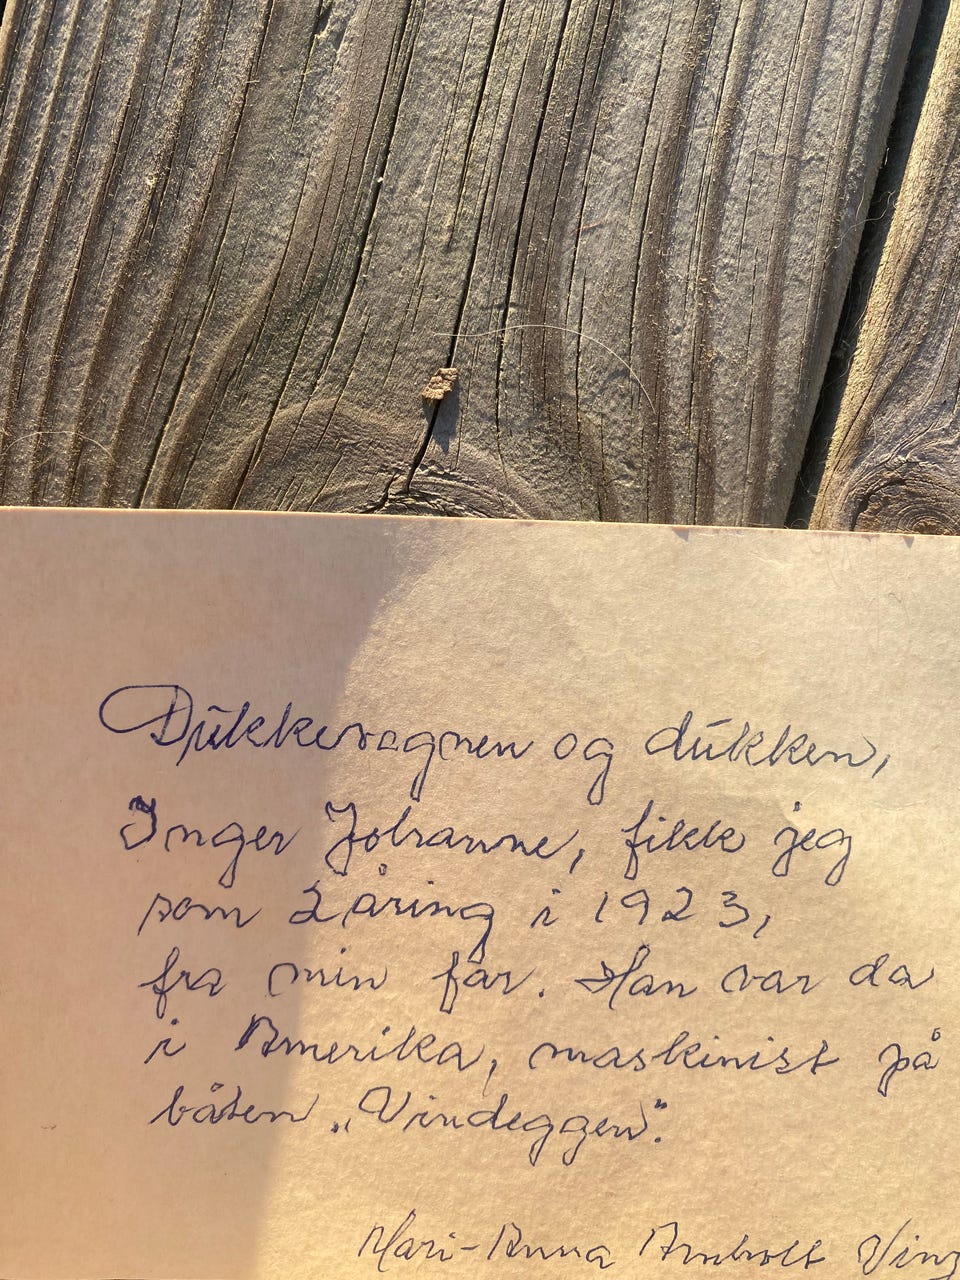 Dukkevognen og dukken,
Inger Johanne, fikk jeg
som 2 åring i 1923,
fra min far. Han var da
i Amerika, maskinist på
båten „Vindeggen".
Mari-Anna